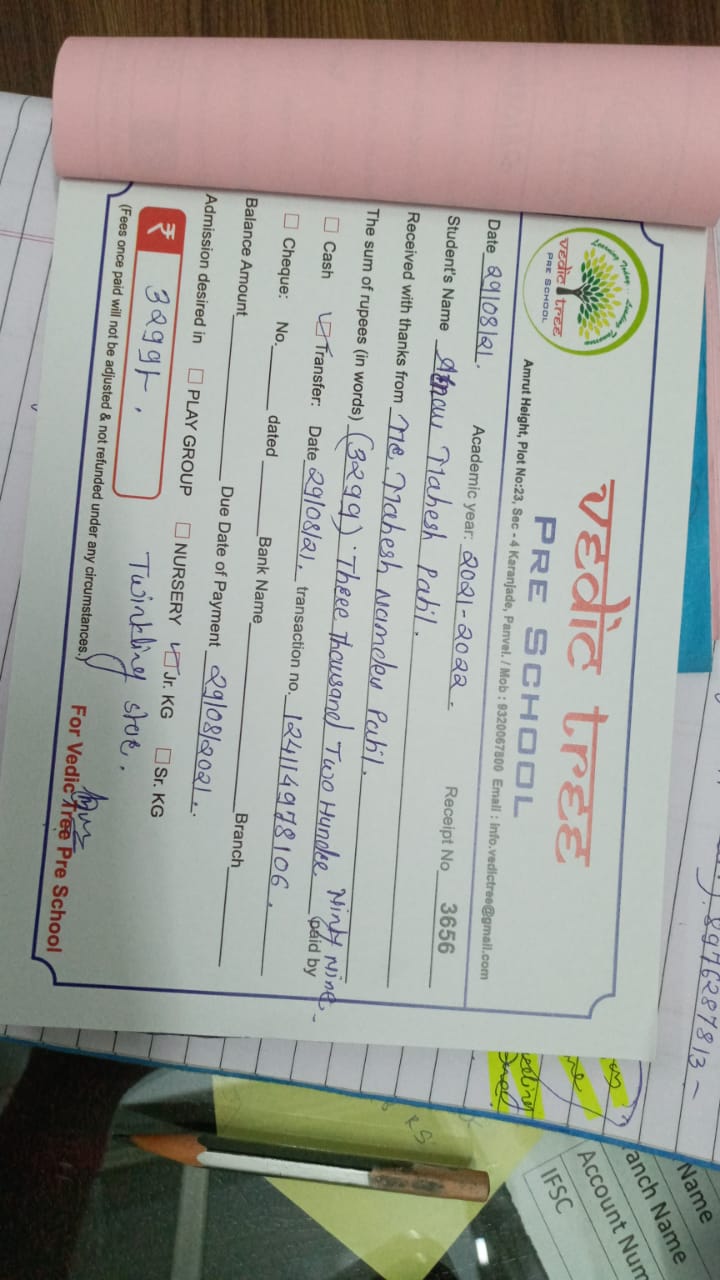 Learning Today - Leading Tomorrow
vedic tree
PRE SCHOOL
vedic tree
PRE SCHOOL
Amrut Height, Plot No:23, Sec - 4 Karanjade, Panvel. / Mob : 9320067800 Email : info.vedictree@gmail.com
Date 29/08/21. Academic year: 2021-2022. Receipt No 3656
Student's Name Mahesh Patil.
Received with thanks from Mr. Mahesh Namdev Patil.
The sum of rupees (in words) (3299). Three Thousand Two Hundre Ninty Nine - paid by
Cash Transfer: Date 29/08/21. transaction no. 124114978106.
Cheque: No. dated Bank Name Branch
Balance Amount Due Date of Payment 29/08/2021.
Admission desired in PLAY GROUP NURSERY Jr. KG Sr. KG
₹ 3299/. Twinkling star.
(Fees once paid will not be adjusted & not refunded under any circumstances.)
For Vedic Tree Pre School
8976287813 -
Name
anch Name
Account Num
IFSC
RS